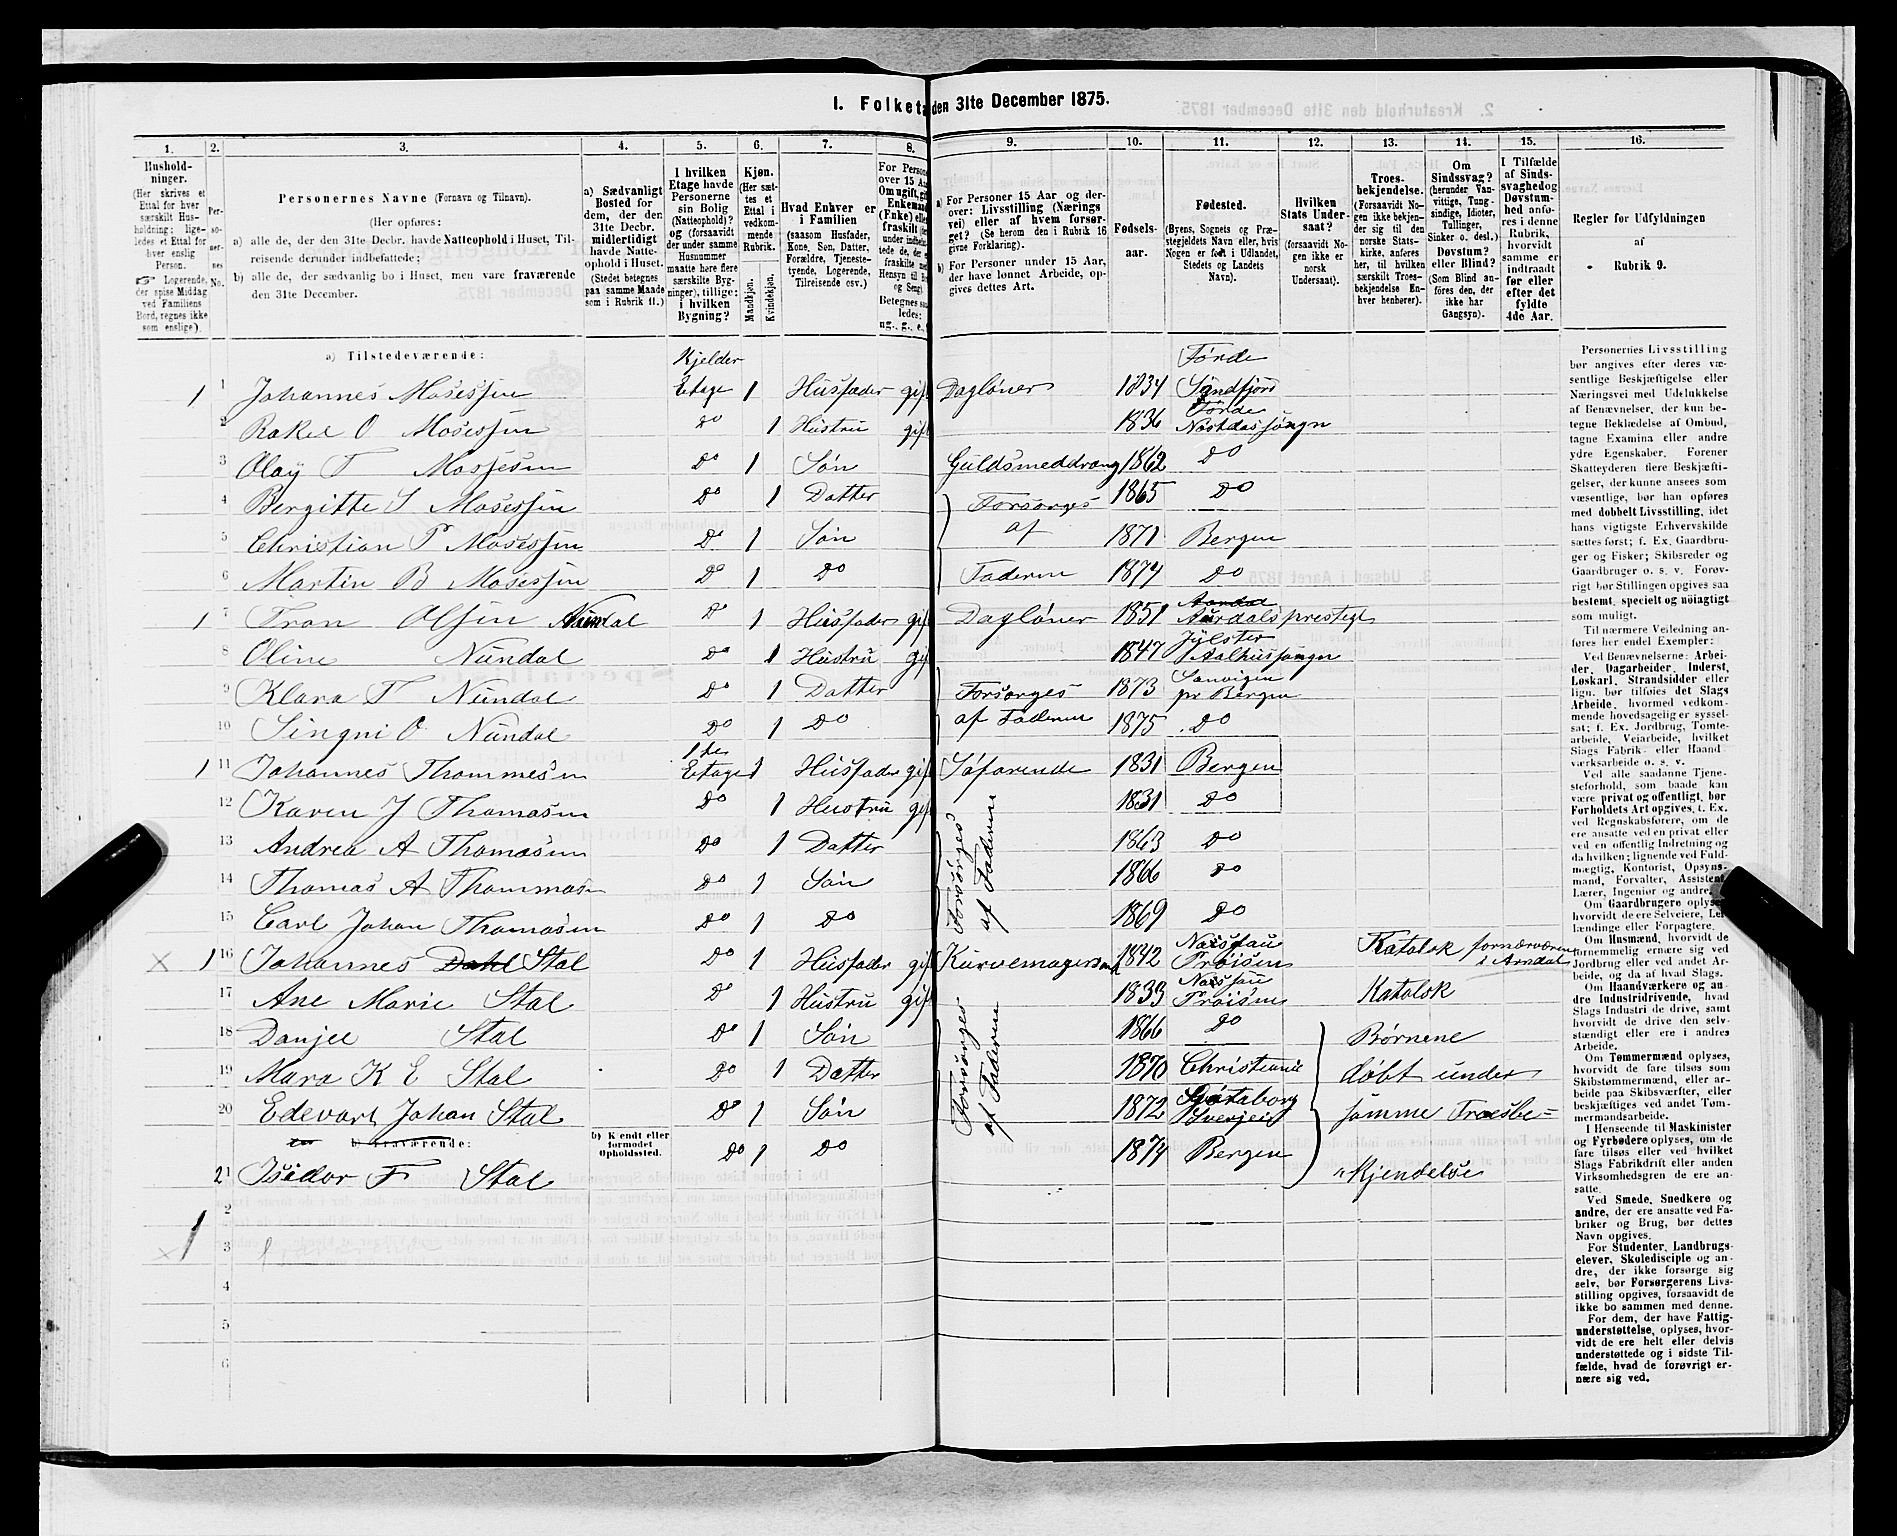 1. Folketæ den 31te December 1875.
1. 2. 3. 4. 5. 6. 7. 8. 9. 10. 11. 12. 13. 14. 15. 16.
Husholdninger. (Her skrives et Ettal for hver særskilt Husholdning; ligeledes et Ettal for hver enslig Person. Logerende, der spise Middag ved Familiens Bord, regnes ikke som enslige).
Personernes No.
Personernes Navne (Fornavn og Tilnavn).
(Her opføres:
a) alle de, der den 31te Decbr. havde Natteophold i Huset, Tilreisende derunder indbefattede;
b) alle de, der sædvanlig bo i Huset, men vare fraværende den 31te December.
a) Sædvanligt Bosted for dem, der den 31te Decbr. midlertidigt havde Natteophold i Huset. (Stedet betegnes paa samme Maade som i Rubrik 11.)
I hvilken Etage havde Personerne sin Bolig (Natteophold)? og (forsaavidt der under samme Husnummer maatte høre flere særskilte Bygninger), tillige: i hvilken Bygning?
Kjøn. (Her sættes et Ettal i vedkommende Rubrik.
Mandkjøn. Kvindekjøn.
Hvad Enhver er i Familien (saasom Husfader, Kone, Søn, Datter, Forældre, Tjenestetyende, Logerende, Tilreisende osv.)
For Person over 15 Aa Om ugift, gi Enkemand (Enke) elle fraskilt
Betegnes saaledes: ug., g., e.,
a) For Personer 15 Aar og derover: Livsstilling (Nærings vei) eller af hvem forsørget? (Se herom den i Rubrik 16 givne Forklaring).
b) For Personer under 15 Aar, der have lønnet Arbeide, opgives dettes Art.
Fødselsaar.
Fødested. (Byens, Sognets og Præstegjeldets Navn eller, hvis Nogen er født i Udlandet, Stedets og Landets Navn).
Hvilken Stats Undersaat? (forsaavidt Nogen ikke er norsk Undersaat).
Troesbekjendelse. (Forsaavidt Nogen ikke bekjender sig til den norske Statskirke, anføres her, til hvilken særskilt Troesbekjendelse Enhver henhører).
Om Sindssvag? (herunder Vanvittige, Tungsindige, Idioter, Tullinger, Sinker o. desl.) Døvstum? eller Blind? (Som Blind anføres den, der ikke har Gangsyn).
I Tilfælde af Sindssvaghed og Døvstumhed anføres i denne Rubrik, hvorvidt samme er indtraadt før eller efter det fyldte 4de Aar.
Regler for Udfyldningen af Rubrik 9.
a) Tilstedeværende:
1 1 Johannes Mosessen Kjelder Etage 1 Husfader gift Dagløner 1834 Førde Søndfjord
2 Rakel O Mosessen Do 1 Hustru gift 1836 Førde Nøstdassongn
3 Olay T Mossesen Do 1 Søn Guldsmeddreng 1862 Do
4 Bergitte S Mosessen Do 1 Datter Forsørges 1865 Do
5 Christian P Mosessen Do 1 Søn af 1871 Bergen
6 Martin B Mosessen Do 1 Do Faderen 1874 Do
1 7 Tron Olsen Nundal Do 1 Husfader gift Dagløner 1851 Aardal Aurdalsprestegt
8 Oline Nundal Do 1 Hustru gif 1847 Jølster Aalhussongn
9 Klara T Nundal Do 1 Datter Forsørges 1873 Sanvigen pr Bergen
10 Singni O Nundal Do 1 Do af Faderen 1875 Do
1 11 Johannes Thommesen 1ste Etage 1 Husfader gift Søfarende 1831 Bergen
12 Karen J Thomasen Do 1 Hustru gift 1831 Do
13 Andrea A Thomasen Do 1 Datter Forsørges af Faderen 1863 Do
14 Thomas A Thommasen Do 1 Søn 1866 Do
15 Carl Johan Thomasen Do 1 Do 1869 Do
X 1 16 Johannes Dahl Stal Do 1 Husfader gift Kurvemagersvend 1842 Nassau Prøisen Katolok fornærværen i Arndal
17 Ane Marie Stal Do 1 Hustru gift 1833 Nassau Prøisen Katolok
18 Danjel Stal Do 1 Søn Forsørges af Faderen 1866 Do Børnene
19 Mara K E Stal Do 1 Datter 1870 Christiania døbt under
20 Edevart Johan Stal Do 1 Søn 1872 Gøtaborg Sverjeig samme Troesbe=
b) Fraværende: b) Kjendt eller formodet Opholdssted.
21 Isidor F Stal Do 1 Do 1874 Bergen kjendelse
2
x 1 3
4
5
6
Personernes Livsstilling bør angives efter deres væsentlige Beskjæftigelse eller Næringsvei med Udelukkelse af Benævnelser, der kun betegne Beklædelse af Ombud, tagne Examina eller andre ydre Egenskaber. Forener Skatteyderen flere Beskjæftigelser, der kunne ansees som væsentlige, bør han opføres med dobbelt Livsstilling, idet hans vigtigste Erhvervskilde sættes først; f. Ex. Gaardbruger og Fisker; Skibsreder og Gaardbruger o. s. v. Forøvrigt bør Stillingen opgives saa bestemt, specielt og nøiagtigt som muligt.
Til nærmere Veiledning anføres her endel Exempler:
Ved Benævnelserne: Arbeider, Dagarbeider, Inderst, Løskarl, Strandsidder eller lign. bør tilføies det Slags Arbeide, hvormed vedkommende hovedsagelig er sysselsat; f. Ex. Jordbrug, Tomtearbeide, Veiarbeide, hvilket Slags Fabrik- eller Haandværksarbeide o. s. v.
Ved alle saadanne Tjenesteforhold, som baade kan være privat og offentligt, bør Forholdets Art opgives, t. Ex. ved Regnskabsførere, om de ere ansatte ved en privat eller ved en offentlig Indretning og da hvilken; lignende ved Fuldmægtig, Kontorist, Opsynsmand, Forvalter, Assistent, Lærer, Ingeniør og andre.
Om Gaardbrugere oplyses, hvorvidt de ere Selveiere, Leilændinge eller Forpagtere.
Om Husmænd, hvorvidt de fornemmelig ernære sig ved Jordbrug eller ved andet Arbeide, og da af hvad Slags.
Om Haandværkere og andre Industridrivende, hvad Slags Industri de drive, samt hvorvidt de drive den selvstændigt eller ere i andres Arbeide.
Om Tømmermænd oplyses, hvorvidt de fare tilsøs som Skibstømmermænd, eller arbeide paa Skibsværfter, eller beskjæftiges ved andet Tømmermandsarbeide.
I Henseende til Maskinister og Fyrbødere oplyses, om de fare tilsøs eller ved hvilket Slags Fabrikdrift eller anden Virksomhedsgren de ere ansatte.
Ved Smede, Snedkere og andre, der ere ansatte ved Fabriker og Brug, bør dettes Navn opgives.
For Studenter, Landbrugselever, Skoledisciple og andre, der ikke forsørge sig selv, bør Forsørgerens Livsstilling opgives, forsaavidt de ikke bo sammen med denne.
For dem, der have Fattigunderstøttelse, oplyses, hvorvidt de ere helt eller delvis understøttede og i sidste Tilfælde, hvad de forøvrigt ernære sig ved.